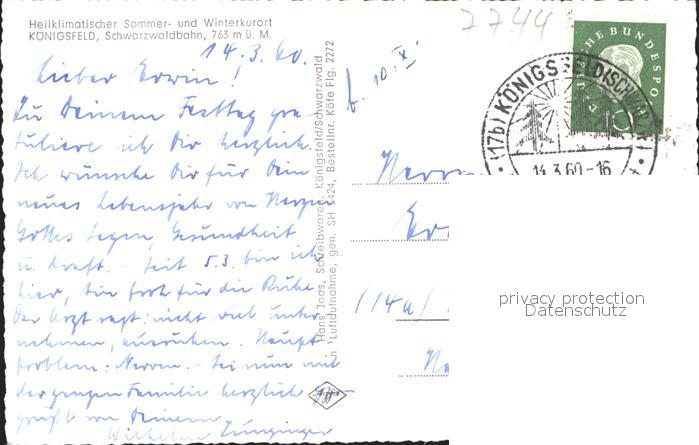 Heilklimatischer Sommer- und Winterkurort
KÖNIGSFELD, Schwarzwaldbahn, 763 m ü. M.
14.3.60.
Lieber Erwin!
Zu Deinem Festtag gra-
tuliere ich Dir herzlich.
Ich wünsche Dir für Dein
neues Lebensjahr von Herzen
Gottes Segen, Gesundheit
u. Kraft. - Seit 5.3. bin ich
hier, bin froh für die Ruhe
Der Arzt sagt: nicht viel unter-
nehmen, ausruhen. Haupt-
problem: Nerven. - Sei nun mit
der ganzen Familie herzlich ge-
grüßt von Deinem
Wilhelm
Hans Joos, Schreibwaren, Königsfeld/Schwarzwald
Luftaufnahme, gen. SH 1424, Bestellnr. Köte Flg. 2272
7744
DEUTSCHE BUNDESPO
10
(17b) KÖNIGSFELD (SCHWARZW)
14.3.60-16
Herrn
(14a)
privacy protection
Datenschutz